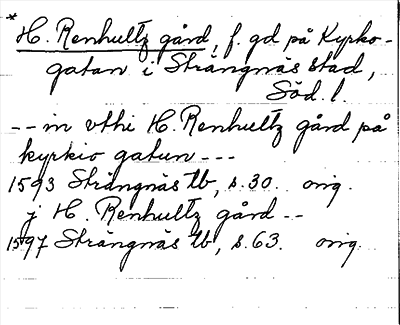 * H. Renhultz gård, f. gd på Kyrko-
gatan i Strängnäs stad,
Söd. l.
-- in vthi H. Renhultz gård på
kyrkio gatun ---
1593 Strängnäs tb, s. 30. orig.
j H. Renhultz gård --
1597 Strängnäs tb, s. 63. orig.